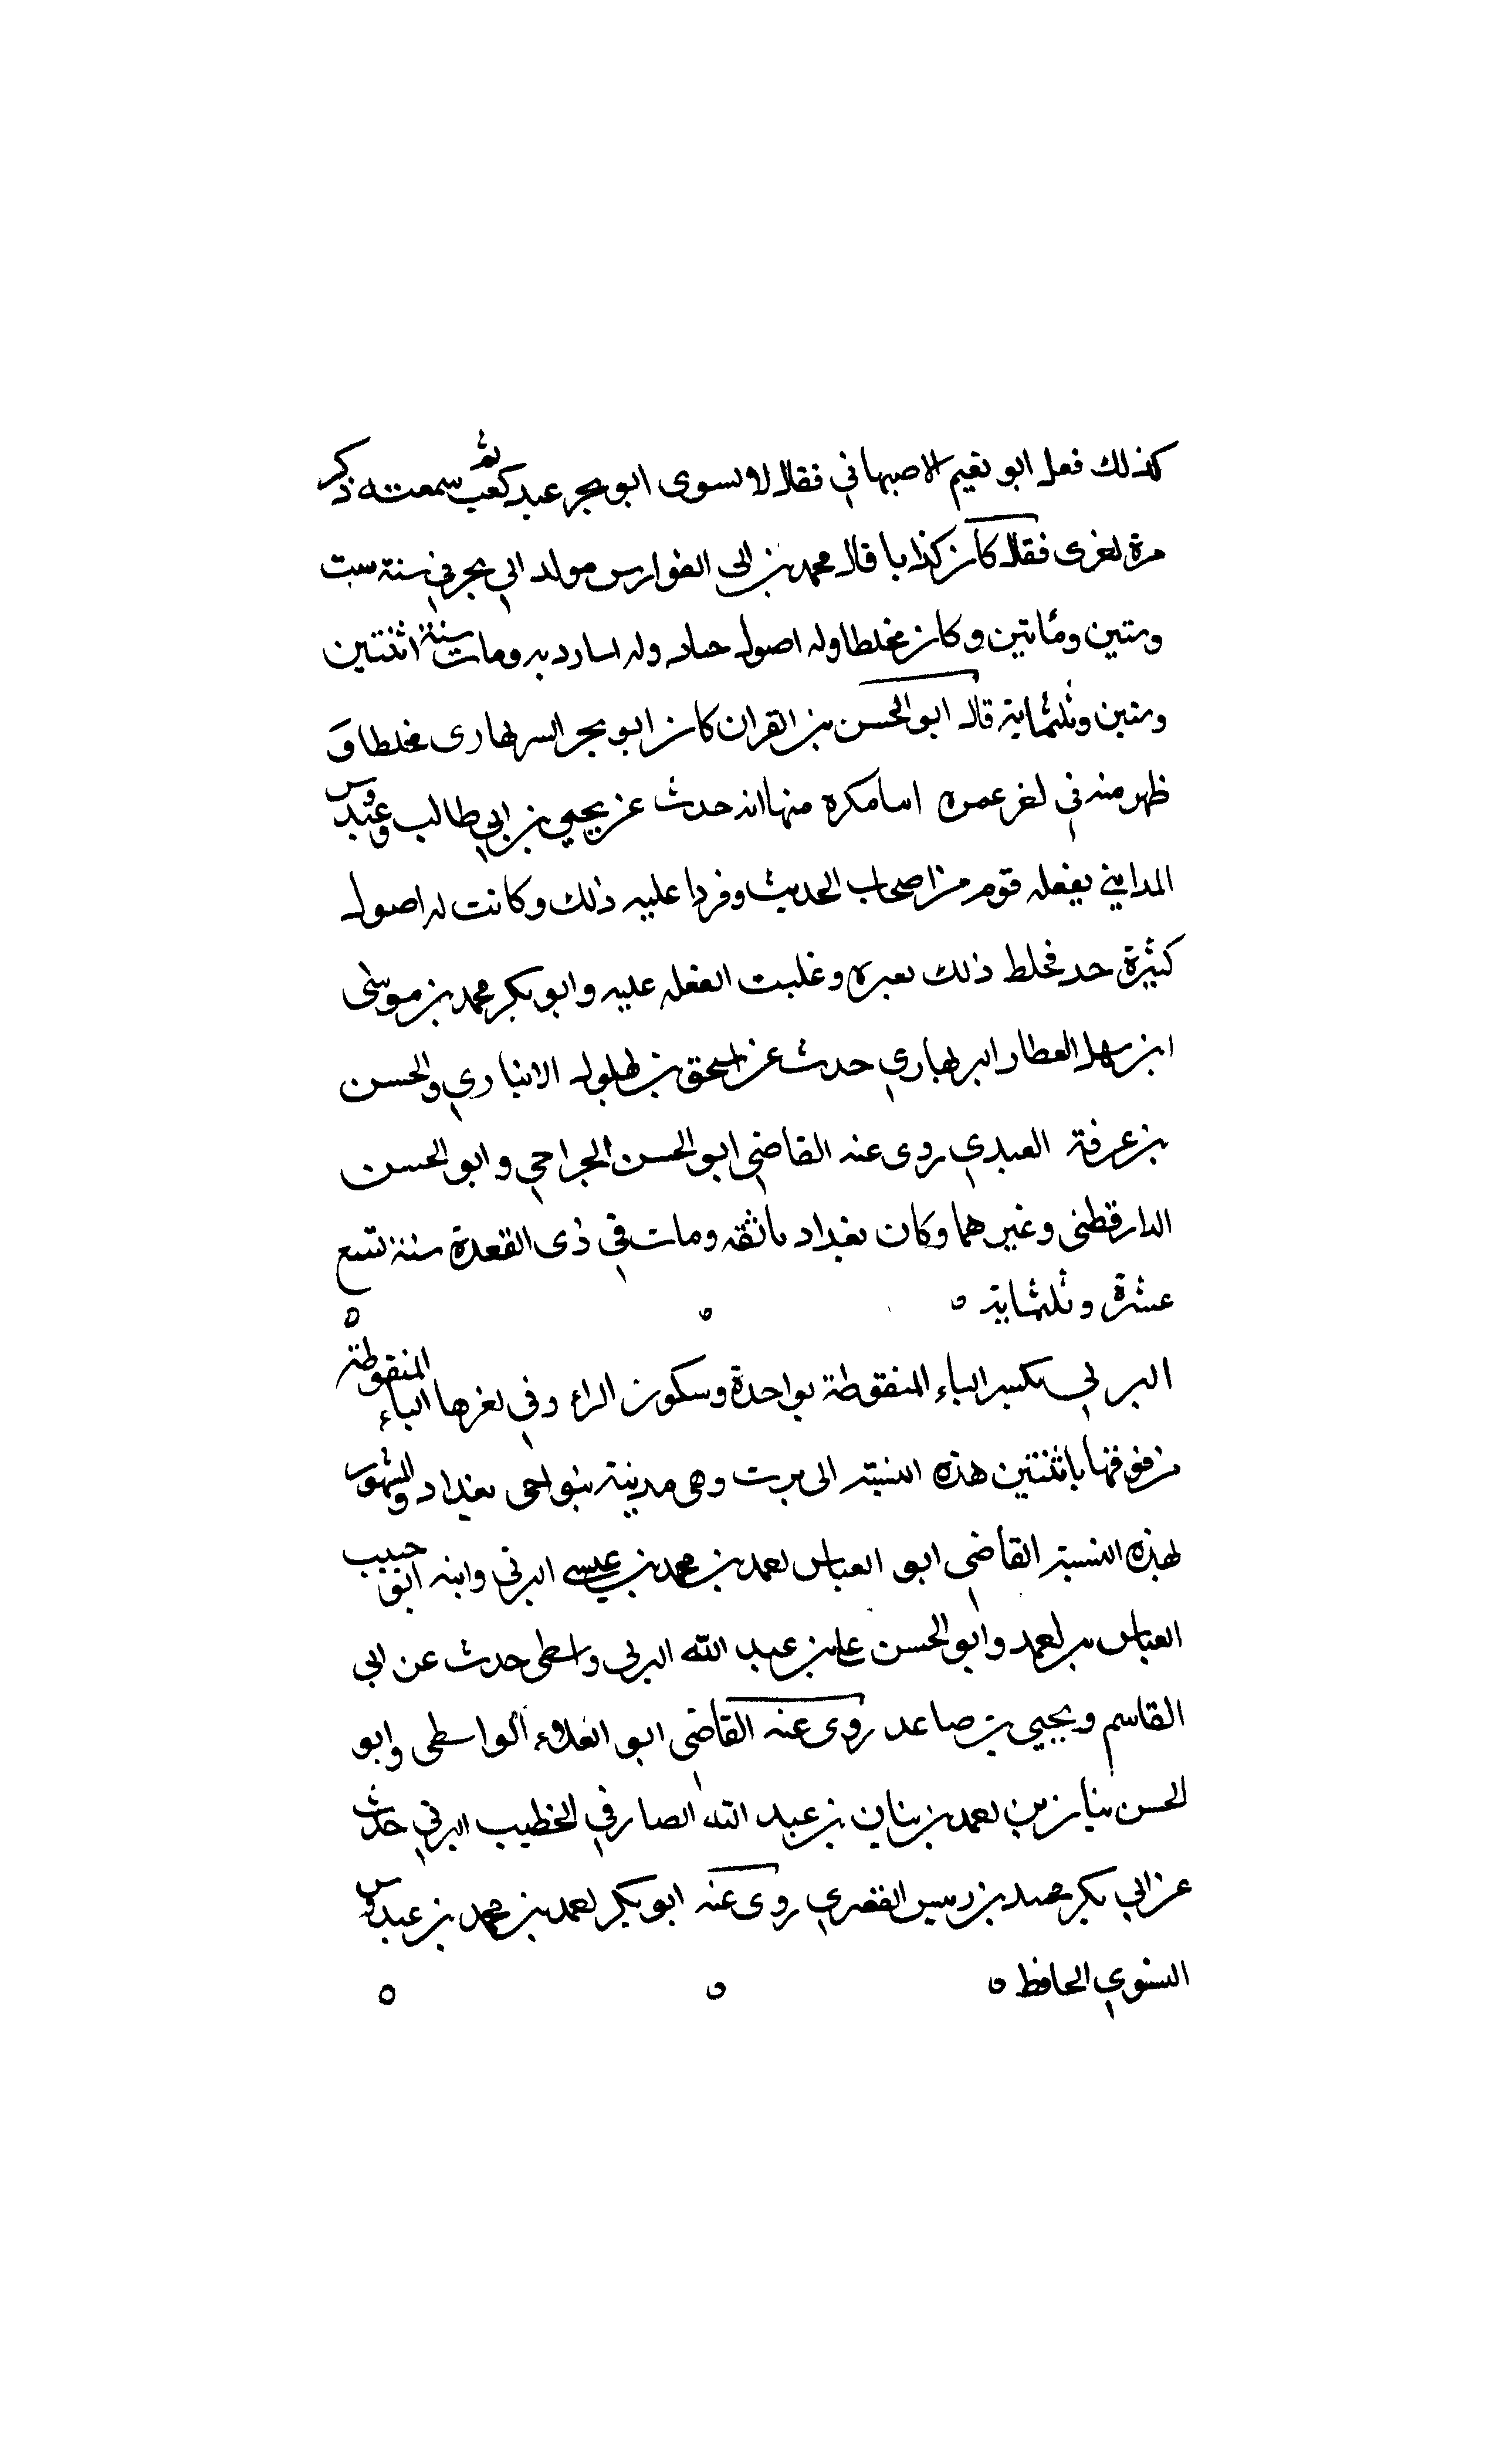 كذلك فعل ابو نعيم الاصبهاني فقال لا يسوى ابو بحر عند كعب ثم سمعته ذكر
مرة اخرى فقال كان كذابا قال محمد بن ابى الفوارس مولد ابي بحر في سنة ست
وستين ومأتين وكان مخلطا وله اصول جياد وله اشيا رديه ومات سنة اثنتين
وستين وثلثماية قال ابو الحسن بن الفرات كان ابو بحر البربهارى مخلطا و
ظهر منه في اخر عمره اشيا منكره منها انه حدث عن يحيى بن ابي طالب وعبدوس
المدايني بغفلة قوم من اصحاب الحديث وقرءا عليه ذلك وكانت له اصول
كثيرة جد فخلط ذلك بغيره وغلبت الغفله عليه وابو بكر محمد بن موسى
ابن سهل العطار البربهاري حدث عن اسحق بن بهلول الانباري والحسن
بن عرفة العبدي روى عنه القاضي ابو الحسن الجراحي وابو الحسن
الدارقطنى وغيرهما وكان ببغداد ثقه ومات في ذى القعدة سنة تسع
عشرة وثلثماية
البرتي بكسر الباء المنقوطة بواحدة وسكون الراء وفي اخرها التاء المنقوطة
من فوقها باثنتين هذه النسبة الى برت وهى مدينة بنواحى بغداد والمشهور
بهذه النسبة القاضي ابو العباس احمد بن محمد بن عيسى البرتي وابنه ابو حبيب
العباس بن احمد وابو الحسن على بن عبد الله البرتى واسطى حدث عن ابى
القاسم ويحيى بن صاعد روى عنه القاضى ابو العلاء الواسطى وابو
الحسن بنان بن احمد بن بنان بن عبد الله الصارفي الخطيب البرتي حدث
عن ابي بكر محمد بن رميس القصري روى عنه ابو بكر احمد بن محمد بن عبدوس
النسوي الحافظ